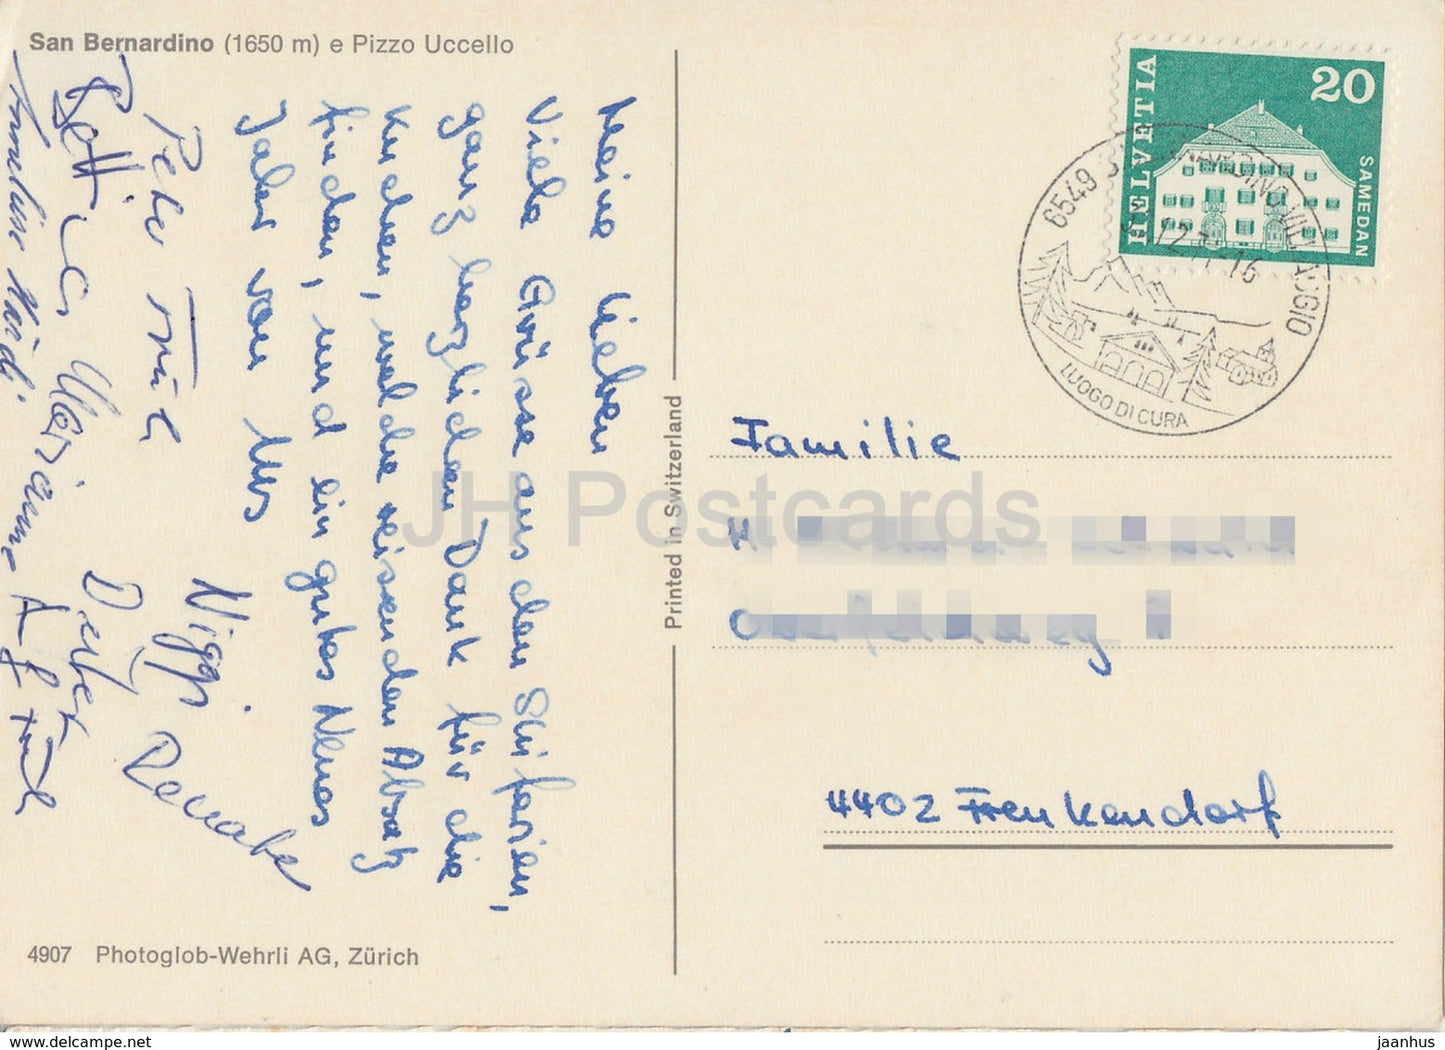 San Bernardino (1650 m) e Pizzo Uccello
Meine Lieben
Viele Grüsse aus den Skiferien,
ganz herzlichen Dank für die
Kuchen, welche reissenden Absatz
finden, und ein gutes Neues
Jahr von Uns
Peter
Niggi
Renate
Bettina
Marianne
4907 Photoglob-Wehrli AG, Zürich
Printed in Switzerland
JH Postcards
HELVETIA
20
SAMEDAN
6549 VILLAGGIO
LUOGO DI CURA
Familie
4402 Frenkendorf
delcampe.net
jaanhus